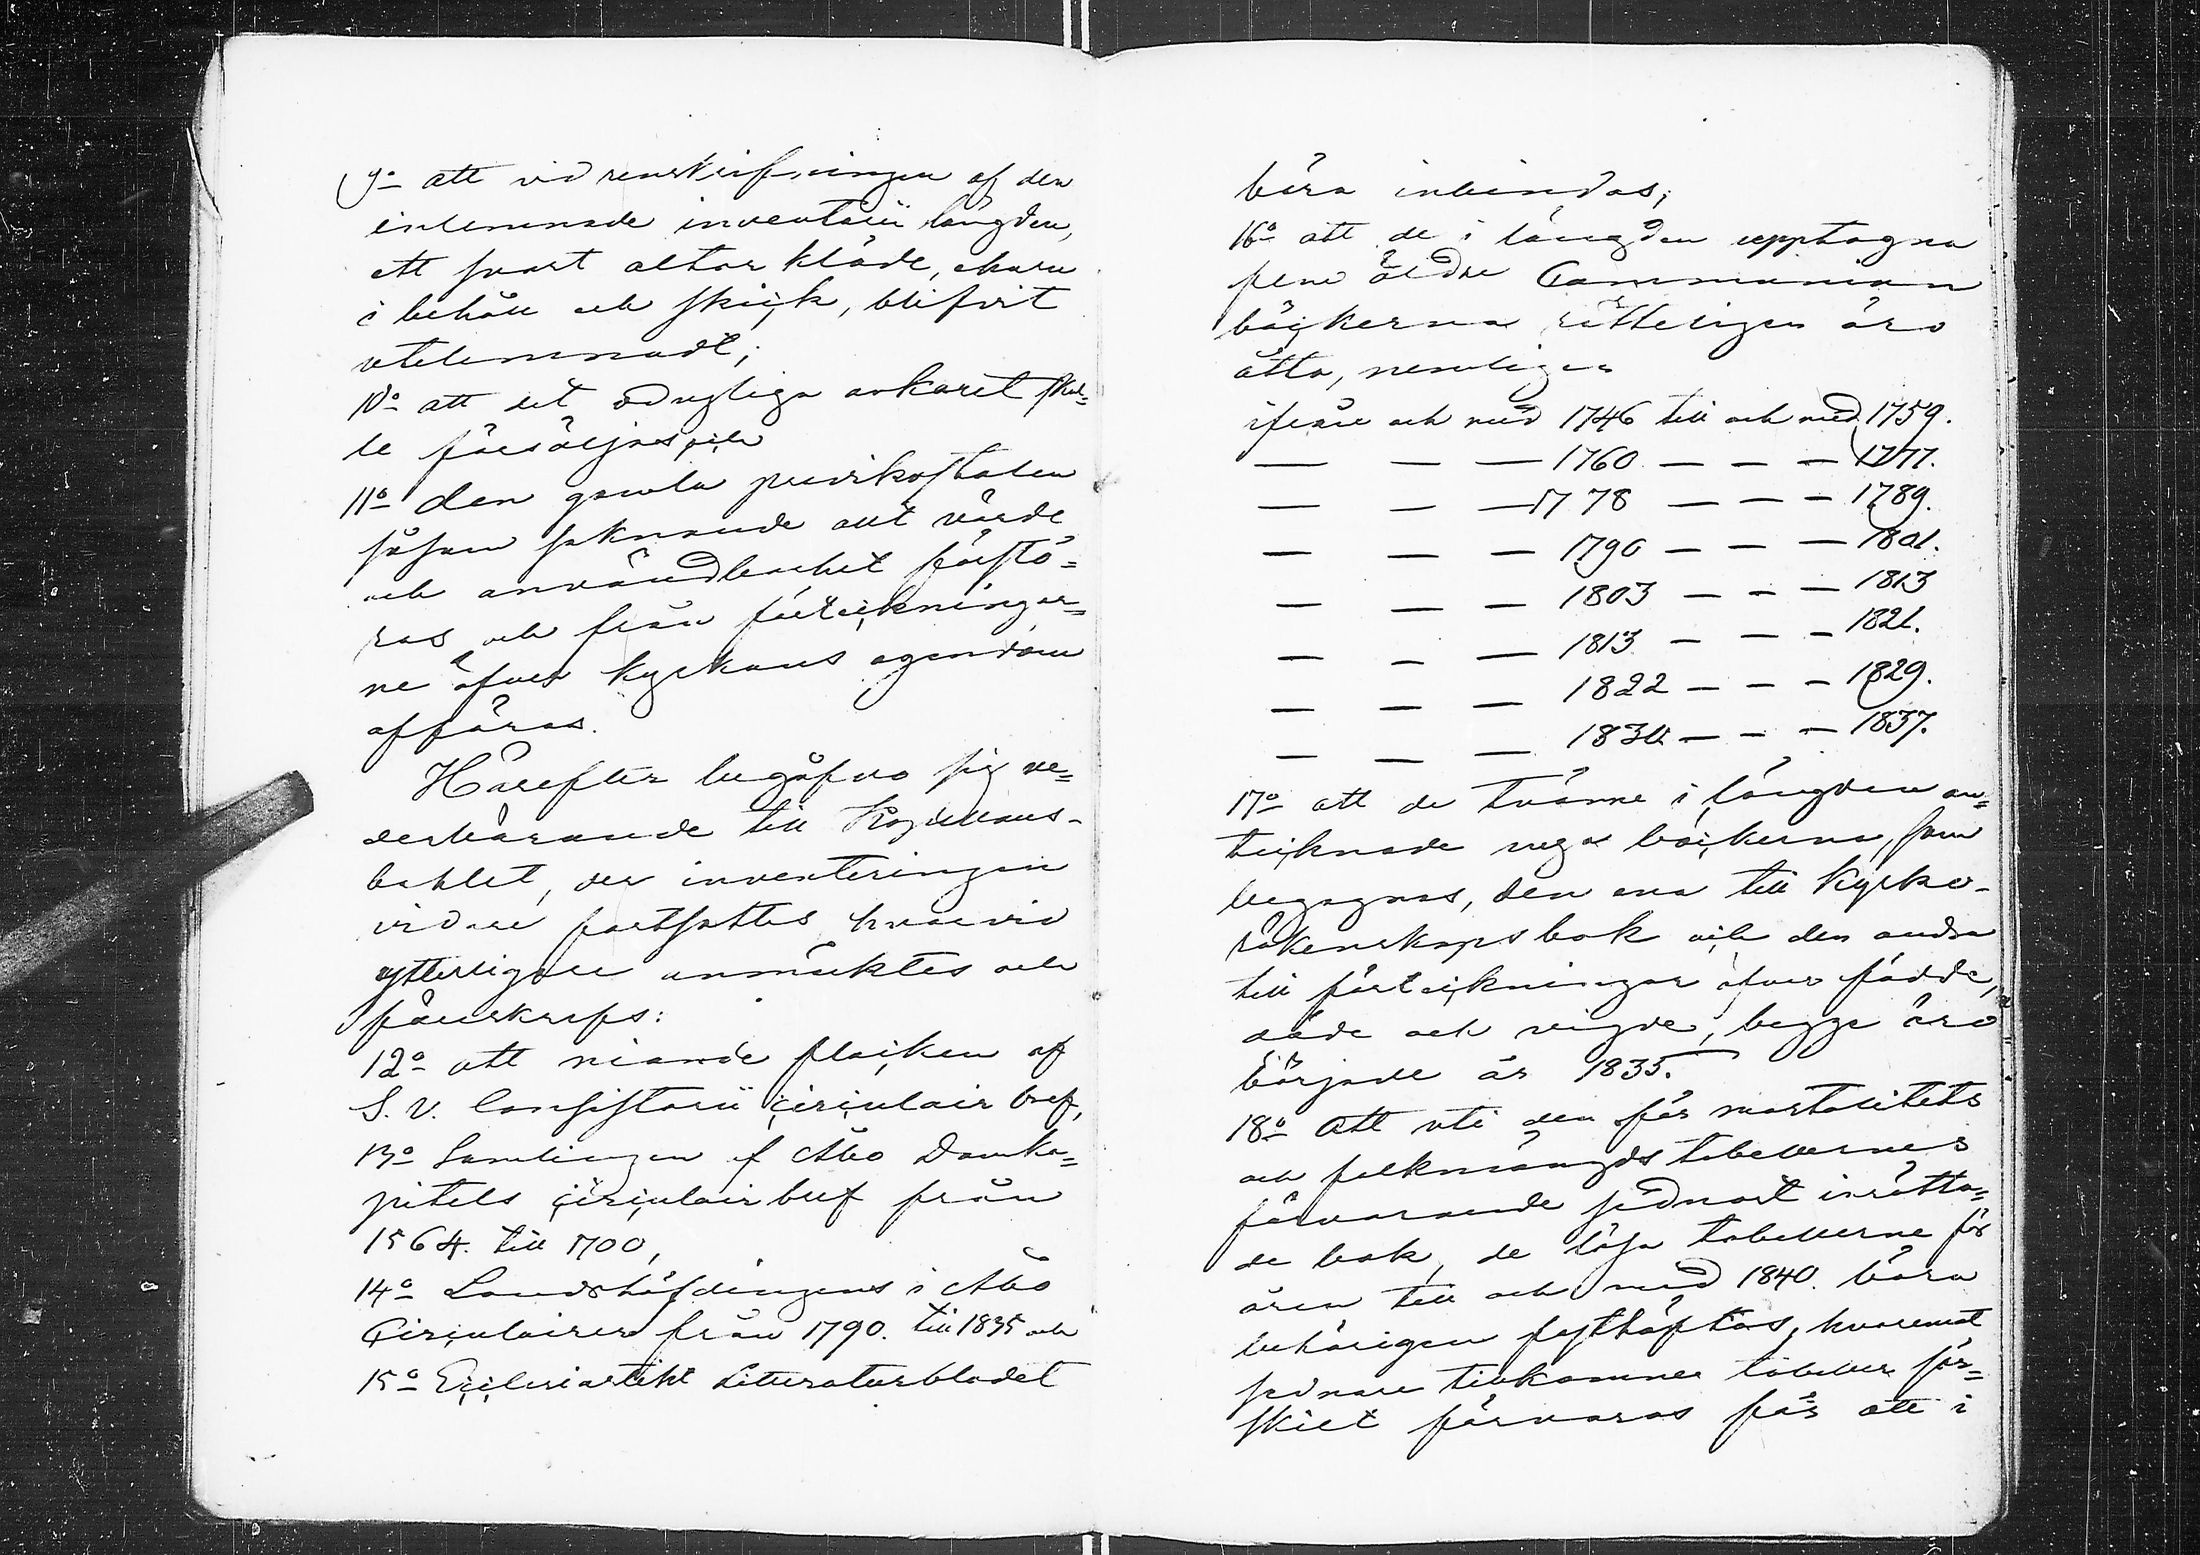 9o att vid renskrifningen af den
inlemnade inventarii längden,
ett svart altar kläde, ehuru
i behåll och skick, blifvit
utelemnadt;
10o att det odugliga ankaret skul=
le försäljas och
11o den gamla
såsom saknande allt värde
och användbarhet förstö=
ras och från förteckningar=
ne öfver kyrkans egendom
afföras.
Härefter begåfvo sig ve=
derbörande till Kapellans-
bohlet, der inventeringen
vidare fortsattes hvarvid
ytterligare anmärktes och
föreskrefs:
12o att niande flocken af
S. V. Consistorii circulair bref,
13o Samlingen af Åbo Domka=
pitels circulair bref från
1564. till 1700,
14o Landshöfdingens i Åbo
Circulairer från 1790. till 1835 och
15o Ecclesiastikt Litteraturbladet
böra inbindas;
16o att de i längden upptagna
fem äldre Communion
böckerna rätteligen äro
åtta, nemligen
ifrån och med 1746 till och med 1759.
— — — 1760 — — — 1777.
— — — 1778 — — — 1789.
— — — 1790 — — — 1801.
— — — 1803 — — — 1813
— — — 1813 — — — 1821.
— — — 1822 — — — 1829.
— — — 1830 — — — 1837.
17o att de tvänne i längden an=
tecknade nya böckerna, som
begagnas, den ena till Kyrko-
räkenskapsbok och den andra
till förteckningar öfver födde,
döde och vigde, begge äro
började år 1835.
18o Att uti den för mortalitets
och folkmängds tabellernes
förvarande sednast inrätta=
de bok, de lösa tabellerne för
åren till och med 1840. böra
behörigen fasthäftas, hvaremot
sednare tillkomne tabeller sär=
skilt förvaras för att i